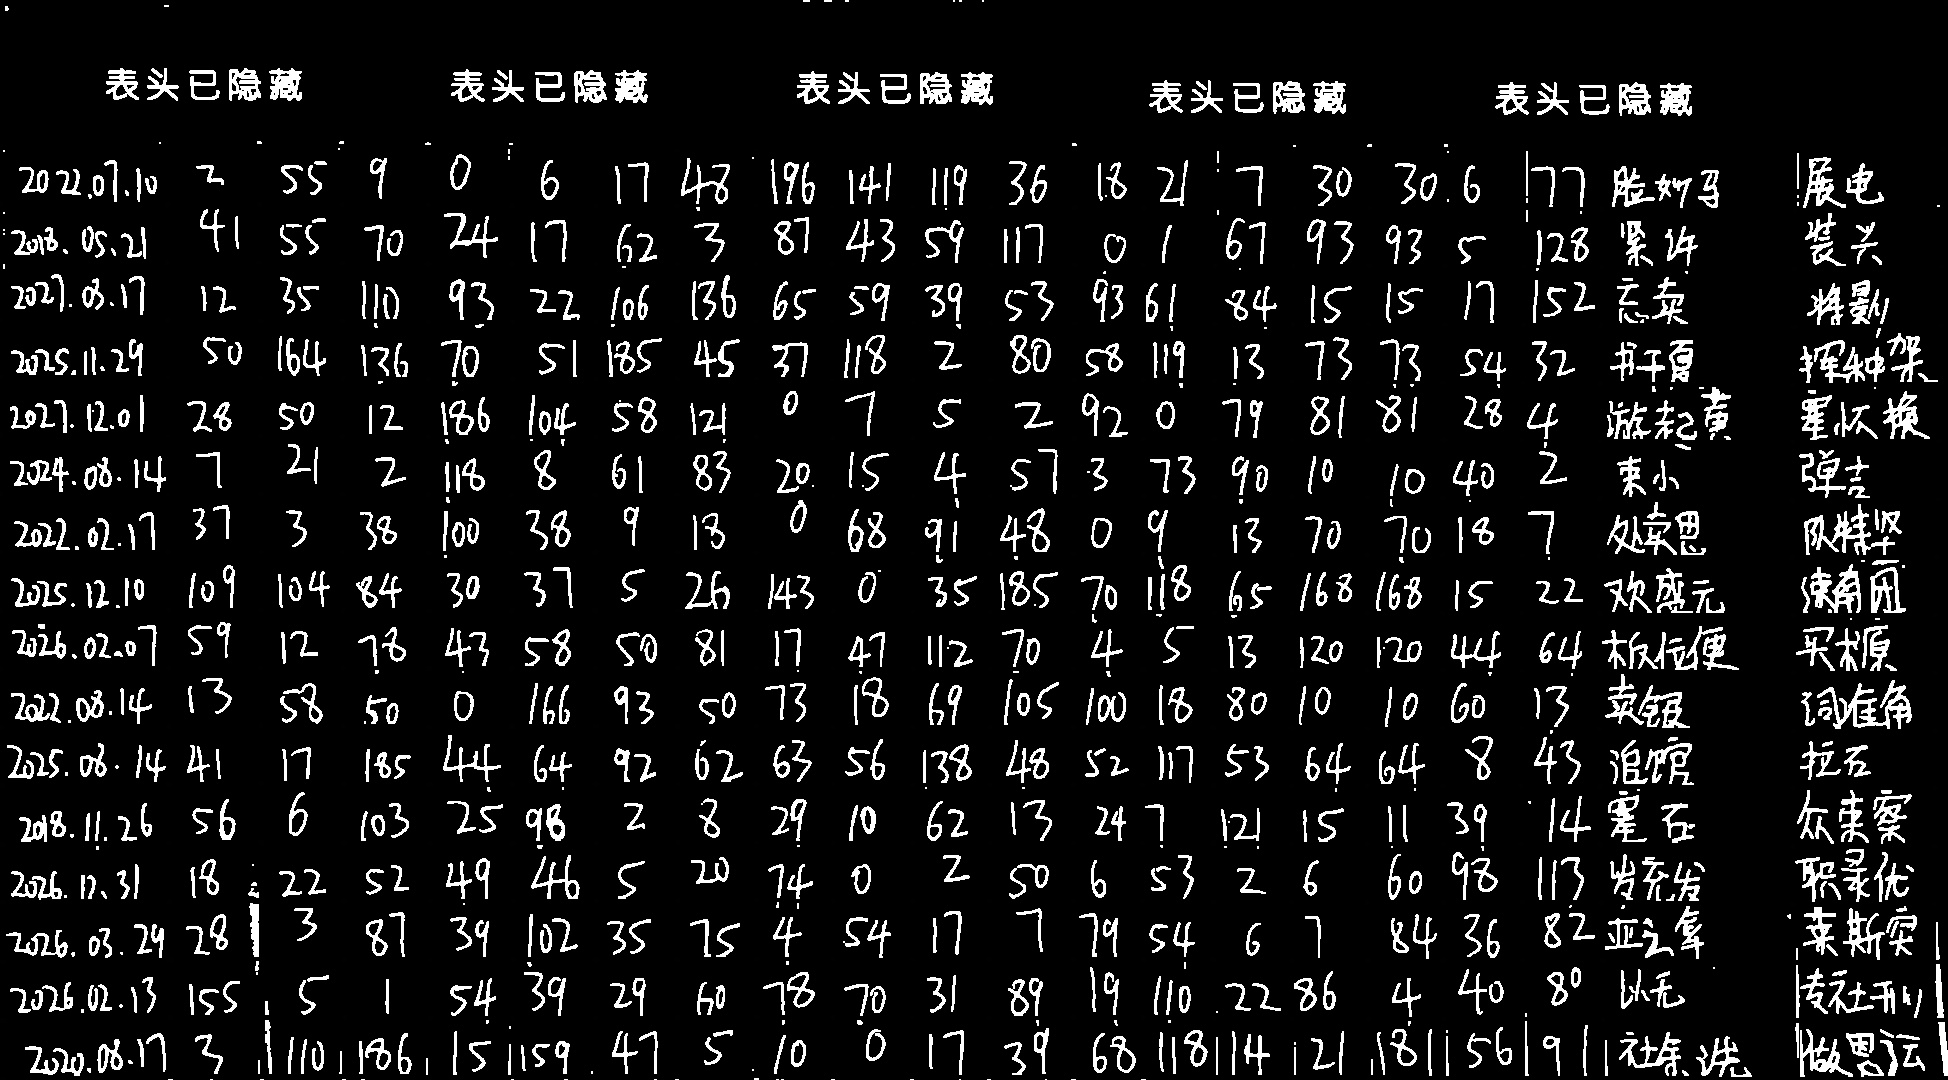 表头已隐藏 表头已隐藏 表头已隐藏 表头已隐藏 表头已隐藏
2022.07.10 2 55 9 0 6 17 48 196 141 119 36 18 21 7 30 30 6 77 脸妙马 展电
2018.05.21 41 55 70 24 17 62 3 87 43 59 117 0 1 67 93 93 5 128 紧许 装兴
2027.08.17 12 35 110 93 22 106 136 65 59 39 53 93 61 84 15 15 17 152 忘卖 将影
2025.11.29 50 164 136 70 51 185 45 37 118 2 80 58 119 13 73 73 54 32 书干夏 挥种架
2027.12.01 28 50 12 186 104 58 121 0 7 5 2 92 0 79 81 81 28 4 游起黄 怀换
2024.08.14 7 21 2 118 8 61 83 20 15 4 57 3 73 90 10 10 40 2 束小 弹吉
2022.02.17 37 3 38 100 38 9 18 0 68 91 48 0 9 13 70 70 18 7 处卖思 队特坚
2025.12.10 109 104 84 30 37 5 26 143 0 35 185 70 118 65 168 168 15 22 欢盛元
2026.02.07 59 12 78 43 58 50 81 17 47 112 70 4 5 13 120 120 44 64 板位便 买木原
2022.08.14 13 58 50 0 166 93 50 73 18 69 105 100 18 80 10 10 60 13 卖银 词准角
2025.08.14 41 17 185 44 64 92 62 63 56 138 48 52 117 53 64 64 8 43 追馆 拉石
2018.11.26 56 6 103 25 98 2 8 29 10 62 13 24 7 121 15 11 39 14 石 众束察
2026.12.31 18 22 52 49 46 5 20 74 0 2 50 6 53 2 6 60 98 113 发充发 职录优
2026.03.29 28 3 87 39 102 35 75 4 54 17 7 79 54 6 7 84 36 82 亚之拿 莱斯突
2026.02.13 155 5 1 54 39 29 60 78 70 31 89 19 110 22 86 4 40 80 以无 专社刑
2020.08.17 3 110 186 15 159 47 5 10 0 17 39 68 118 14 121 181 56 91 社余洗 做思运